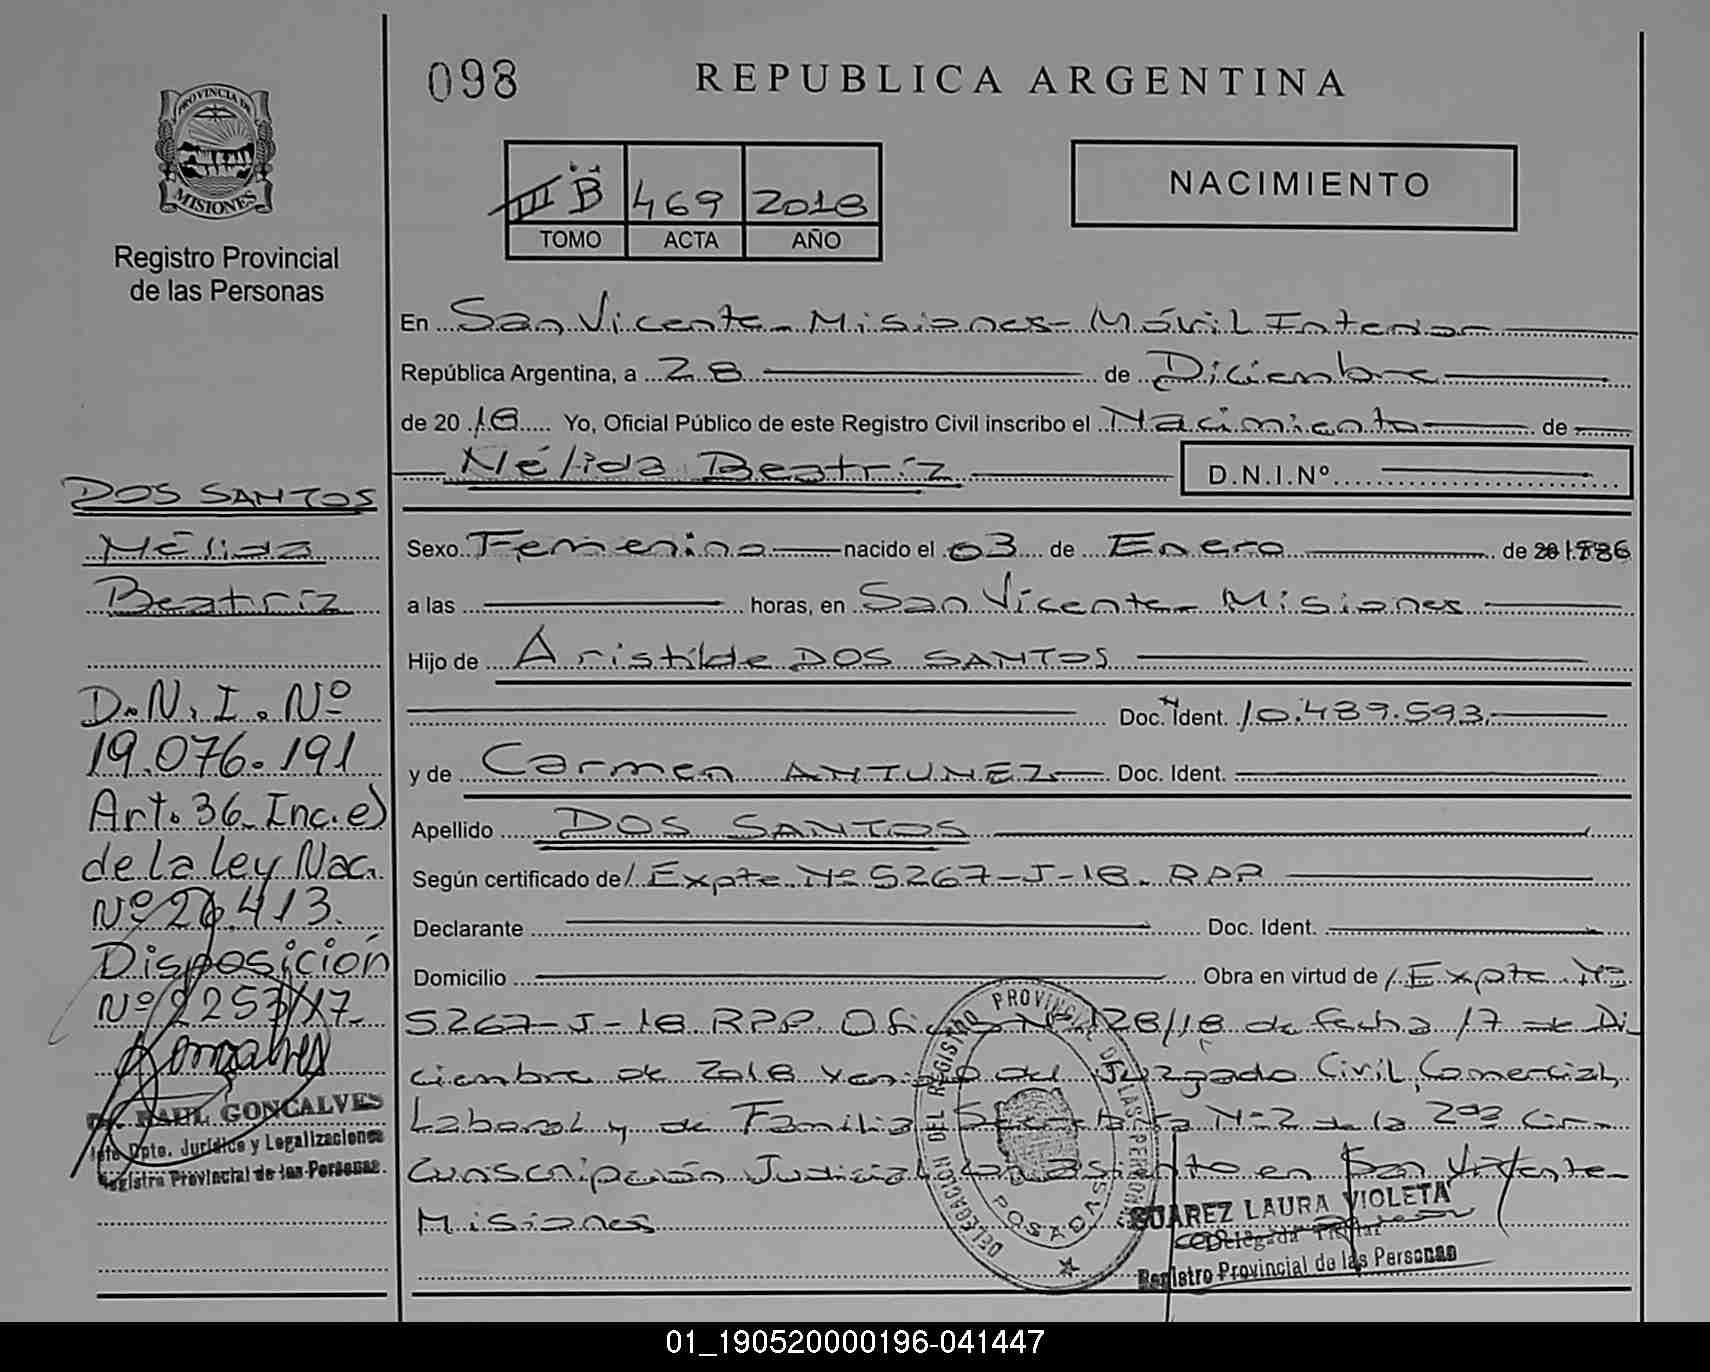 098
REPUBLICA ARGENTINA
PROVINCIA DE
MISIONES
Registro Provincial
de las Personas
III B 469 2018
TOMO ACTA AÑO
NACIMIENTO
En San Vicente - Misiones - Móvil Interior
República Argentina, a 28 de Diciembre
de 2018 Yo, Oficial Público de este Registro Civil inscribo el Nacimiento de
Nélida Beatríz D.N.I.Nº
Sexo Femenino nacido el 03 de Enero de 1986
a las horas, en San Vicente - Misiones
Hijo de Aristilde DOS SANTOS
Doc. Ident. 10.489.593
y de Carmen ANTUNEZ Doc. Ident.
Apellido DOS SANTOS
Según certificado de/ Expte Nº 5267-J-18. RPP
Declarante Doc. Ident.
Domicilio Obra en virtud de / Expte Nº
5267-J-18 RPP Oficio Nº 128/18 de fecha 17 de Di
ciembre de 2018 venido del Juzgado Civil, Comercial,
Laboral y de Familia Secretaría Nº2 de la 2da Cir-
cunscripción Judicial con asiento en San Vicente-
Misiones
DOS SANTOS
Nélida
Beatríz
D.N.I. Nº
19.076.191
Art. 36 Inc. e)
de la ley Nac.
Nº 26.413.
Disposición
Nº 2253/17.
Gonzalves
Dr. RAUL GONCALVES
Jefe Dpto. Jurídico y Legalizaciones
Registro Provincial de las Personas.
DELEGACION DEL REGISTRO PROVINCIAL DE LAS PERSONAS
POSADAS
SUAREZ LAURA VIOLETA
Delegada Titular
Registro Provincial de las Personas
01_190520000196-041447